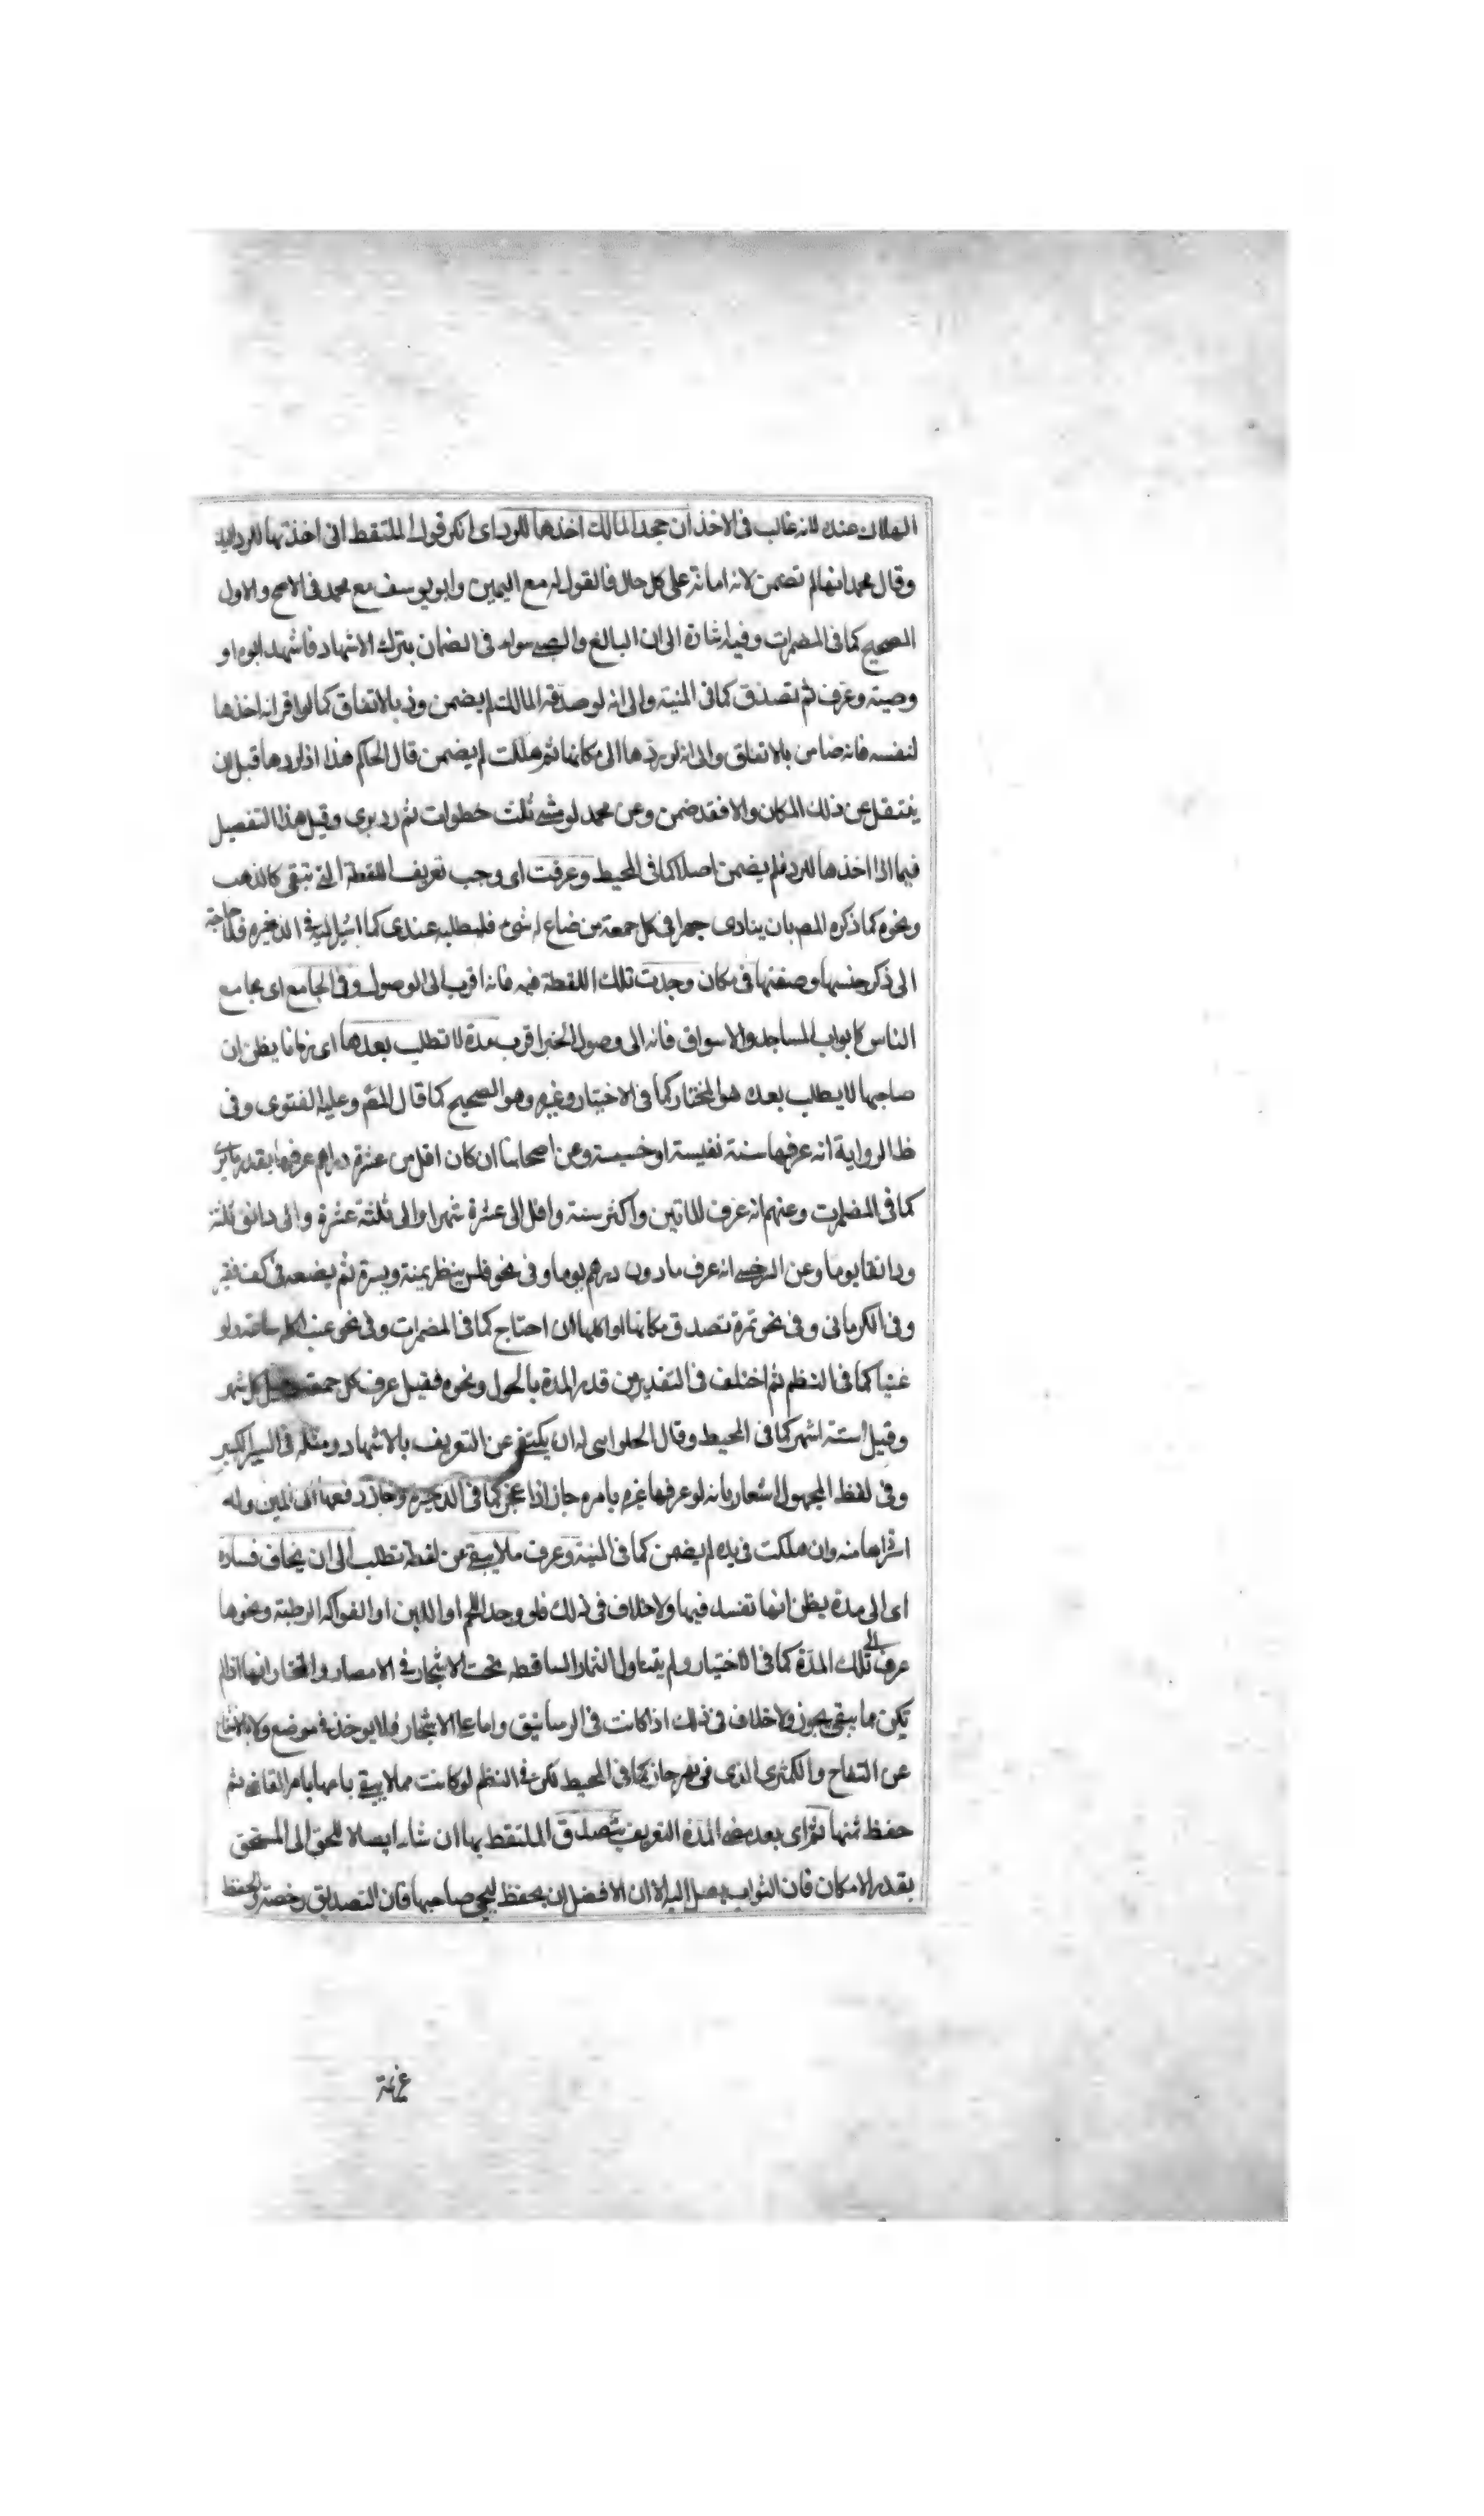 الهلاك عنده لانه غالب فى الاخذ ان جحد المالك اخذها للرد اى انكر قول الملتقط انى اخذتها للرد اليه
وقال محمد انها لم تضمن لانه امانة على كل حال فالقول له مع اليمين وابو يوسف مع محمد فى الاصح والاول
الصحيح كما فى المضمرات وفيه اشارة الى ان البالغ والصبى سواء فى الضمان بترك الاشهاد فاشهد ابوه او
وصيته وعرف ثم تصدق كما فى المنية والى انه لو صدقه المالك لم يضمن وذ بالاتفاق كما لو اقر انه اخذها
لنفسه فانه ضامن بالاتفاق والى انه لو ردها الى مكانها ثم هلكت لم يضمن قال الحاكم هذا اذا ردها قبل ان
ينتقل عن ذلك المكان والا فقد ضمن وعن محمد لو مشى ثلث خطوات ثم رد برى وقيل هذا التفصيل
فيما اذا اخذها للرد فلم يضمن اصلا كما فى المحيط وعرفت اى وجب تعريف اللقطة التى تبقى كالذهب
ونحوه كما ذكره المص بان ينادى جهرا فى كل جمعة من ضاع له شئ فليطلبه عندى كما اشير اليه فى الذخيره فلا حاجة
الى ذكر جنسها وصفتها فى مكان وجدت تلك اللقطة فيه فانه اقرب الى الوصول وفى الجامع اى مجامع
الناس كابواب المساجد والاسواق فانه الى وصول الخبر اقرب مدة لا تطلب بعدها اى زمانا يظن ان
صاحبها لا يطلب بعده هو المختار كما فى الاختيار وغيره وهو الصحيح كما قال المص وعليه الفتوى وفى
ظ الرواية انه عرفها سنة نفيسة او خسيسة وعن اصحابنا ان كان اقل من عشرة دراهم عرفها بقدر ما يرى
كما فى المضمرات وعنهم انه عرف للماتين واكثر سنة واقل الى عشرة شهرا والى ثلثة عشرة والى دانق ثلثة
ودانقا يوما وعن السرخسى انه عرف ما دون درهم يوما وفى نحو فلس ينظر يمنة ويسرة ثم يضعه فى كف فقير
وفى الكرمانى وفى نحو تمرة تصدق مكانها او اكلها ان احتاج كما فى المضمرات وفى نحو عنب اكله ساعته ولو
غنيا كما فى النظم ثم اختلف فى التقديرين قدر المدة بالحول ونحوه فقيل عرف كل جمعة وقيل كل شهر
وقيل ستة اشهر كما فى المحيط وقال الحلوانى له ان يكتفى عن التعريف بالاشهاد ومثله فى السير الكبير
وفى لفظ المجهول اشعار بانه لو عرفها غيره بامره جاز اذا عجز كما فى الذخيرة وجاز دفعها الى امين وله
استردادها منه وان هلكت فى يده لم يضمن كما فى المنية وعرف ما لا يبقى من لقطة تطلب الى ان يخاف فساده
اى الى مدة يظن انها تفسد فيها ولا خلاف فى ذلك فلو وجد اللحم او اللبن او الفواكه الرطبة ونحوها
عرف الى تلك المدة كما فى الاختيار ولم يتناول الثمار الساقطه تحت الاشجار فى الامصار والمختار انها اذا لم
يكن مما يبقى يجوز ولا خلاف فى ذلك اذا كانت فى الرساتيق واما على الاشجار فلا يوخذ فى موضع ولا
عن التفاح والكمثرى الذى فى نهر جاز كما فى المحيط لكن فى النظم لو كانت مما لا يبقى باعها بامر القاضى ثم
حفظ ثمنها ثم اى بعد مضى المدة التعريف يتصدق الملتقط بها ان شاء ايصالا للحق الى المستحق
بقدر الامكان فان الثواب يصل اليه الا ان الافضل ان يحفظ ليجئ صاحبها فان التصديق رخصة والحفظ
عزيمة